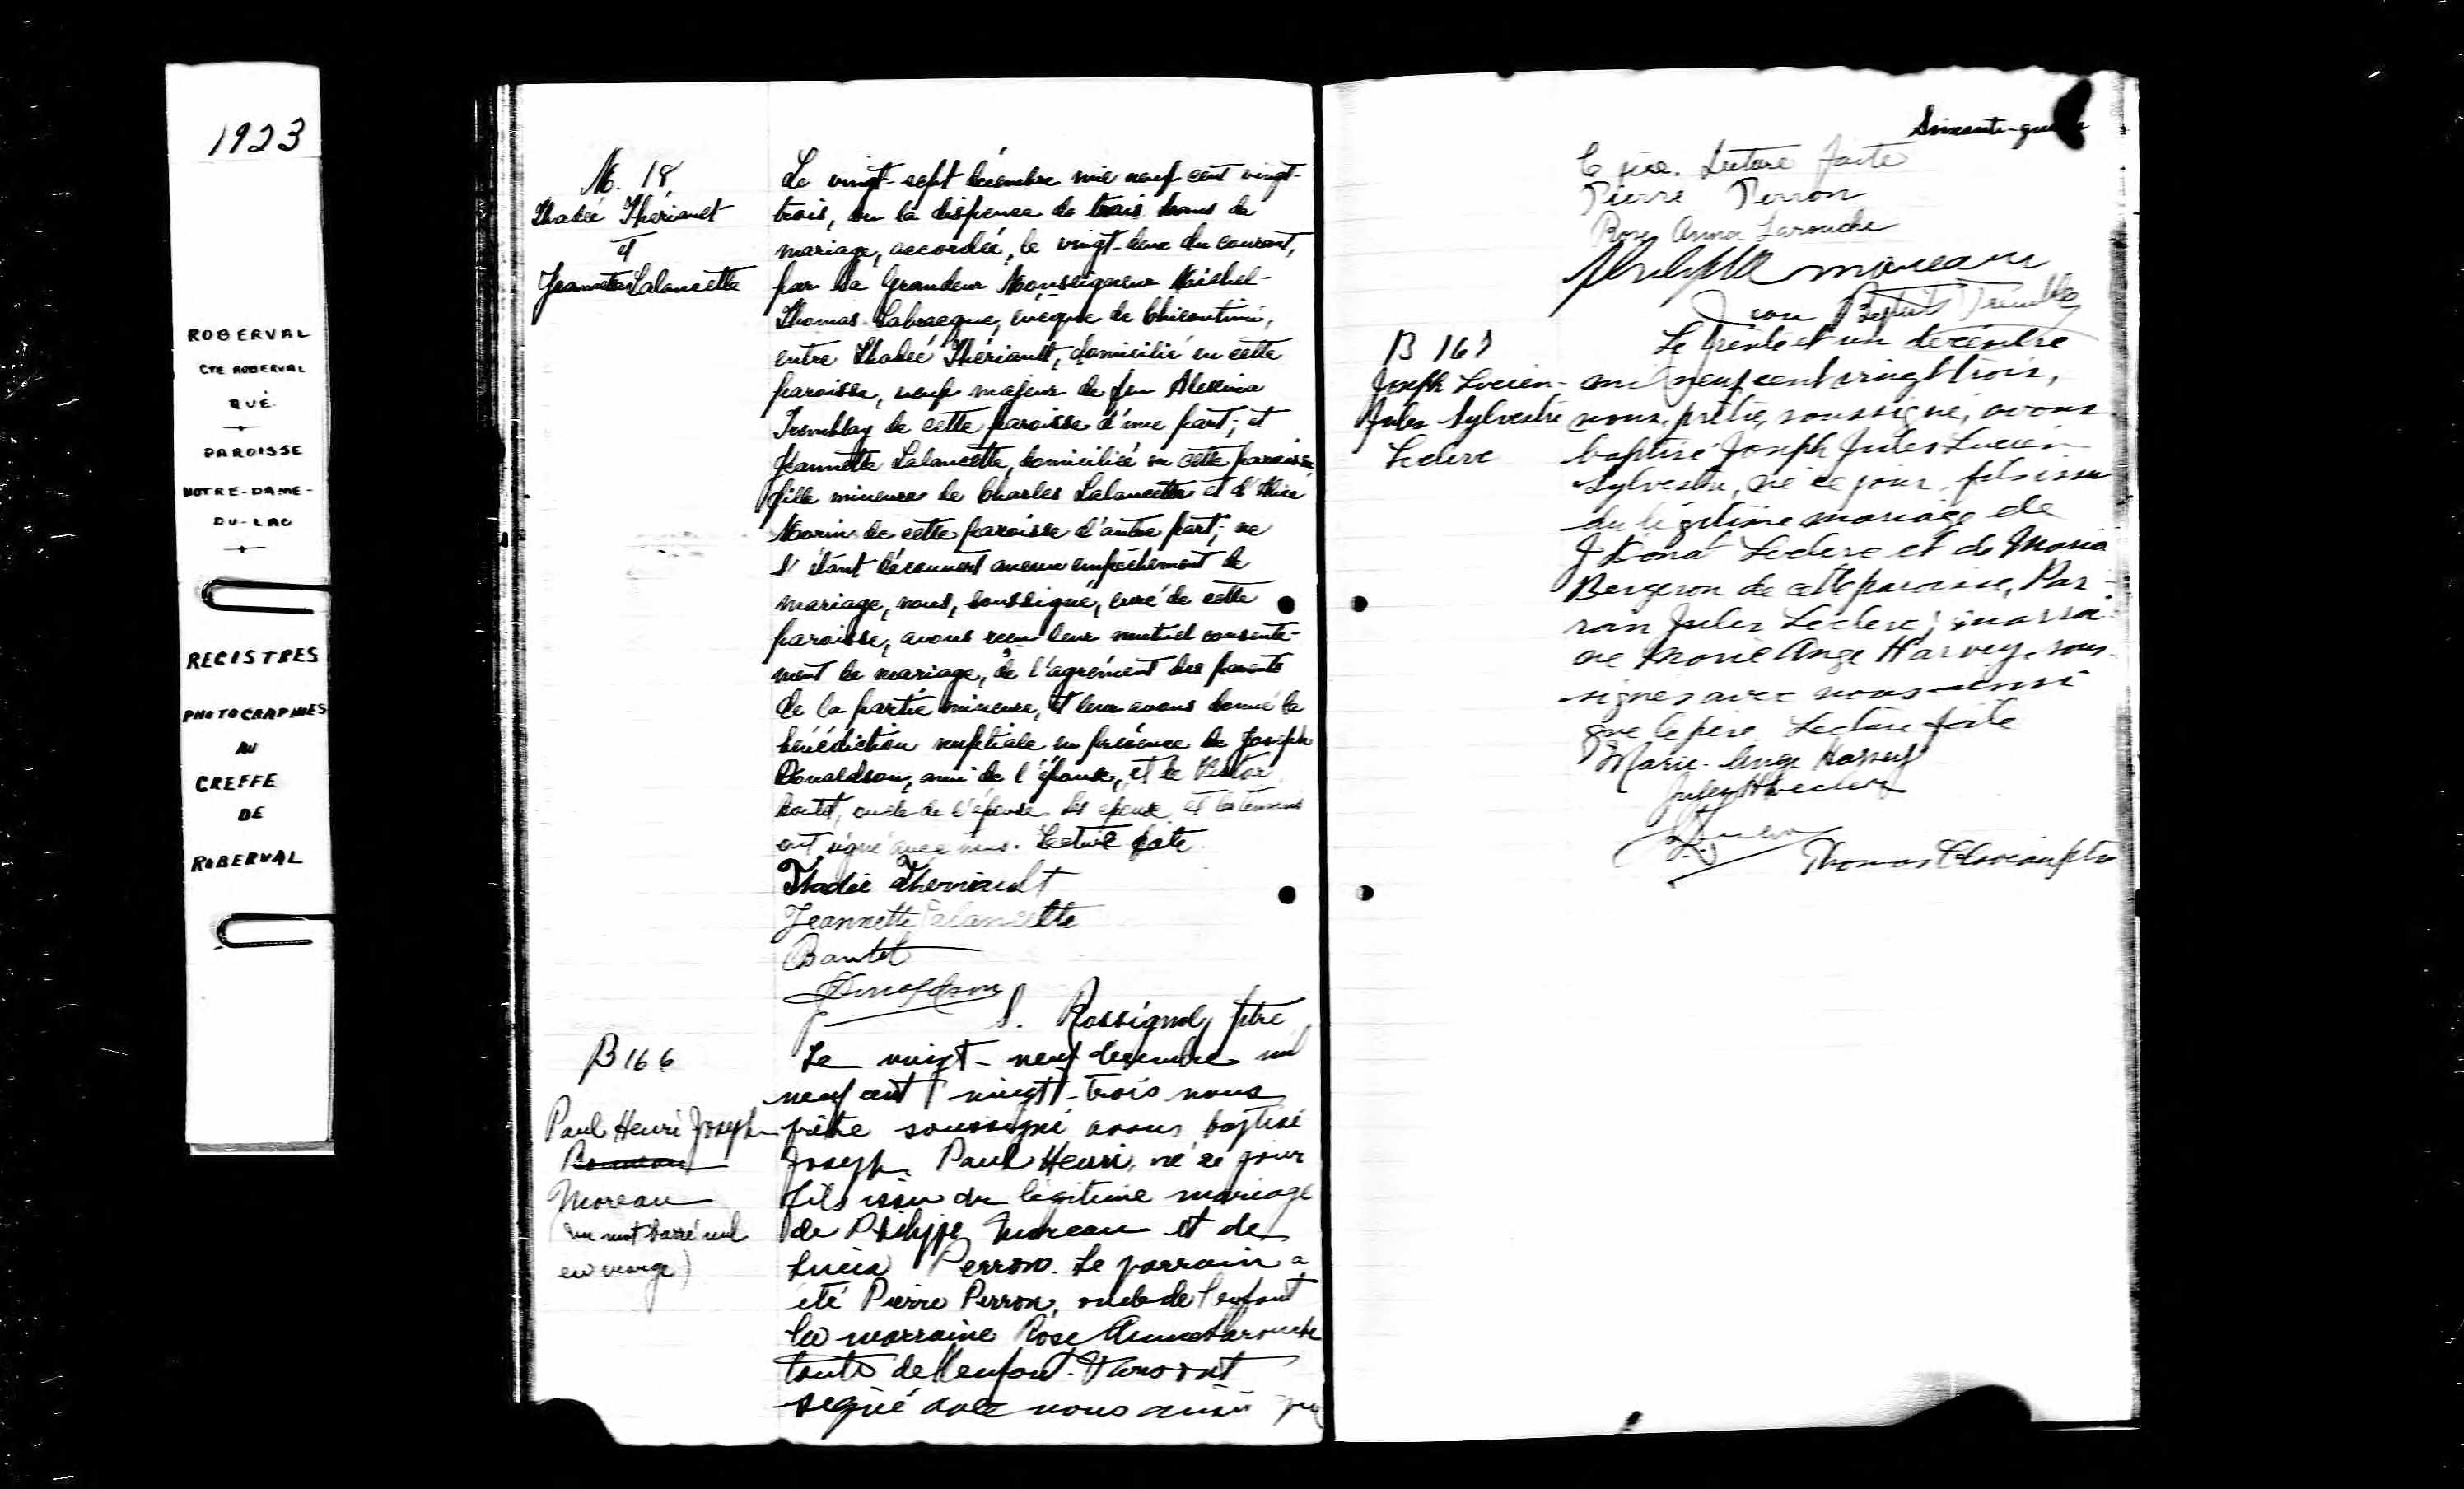 1923
ROBERVAL
CTE ROBERVAL
QUÉ.
PAROISSE
NOTRE-DAME-
DU-LAC
REGISTRES
PHOTOGRAPHIES
AU
GREFFE
DE
ROBERVAL
M. 18.
Thadée Thériault
et
Jeannette Lalancette
Le vingt-sept décembre mil neuf cent vingt-
trois, vu la dispense de trois bans de
mariage, accordée, le vingt-deux du courant,
par Sa Grandeur Monseigneur Michel-
Thomas Labrecque, évêque de Chicoutimi,
entre Thadée Thériault, domicilié en cette
paroisse, veuf majeur de feu Alexina
Tremblay de cette paroisse d'une part; et
Jeannette Lalancette, domiciliée en cette paroisse
fille mineure de Charles Lalancette et d'Alice
Morin de cette paroisse d'autre part; ne
s'étant découvert aucun empêchement de
mariage, nous, soussigné, curé de cette
paroisse, avons reçu leur mutuel consente-
ment de mariage, de l'agrément des parents
de la partie mineure, et leur avons donné la
bénédiction nuptiale en présence de Joseph
Donaldson, ami de l'époux, et de
oncle de l'épouse. Les époux et les témoins
ont signé avec nous. Lecture faite.
Thadée Therriault
Jeannette Lalancette
Boutet
J Donaldson
S. Rossignol, ptre
B 166
Paul Henri Joseph
Moreau
(un mot barré nul
en marge)
Le vingt-neuf decembre mil
neuf cent vingt-trois nous
prêtre soussigné avons baptisé
Joseph Paul Henri, né ce jour
fils issu du légitime mariage
de Philippe Moreau et de
Lucia Perron. Le parrain a
été Pierre Perron, oncle de l'enfant
la marraine Rose Anna Larouche
tante de l'enfant. ont
signé avec nous ainsi que
Soixante-
le père. Lecture faite
Pierre Perron
Rose Anna Larouche
Philippe Moreau
Jean Baptiste Tremblay
B 167
Joseph Lucien-
Jules Sylvestre
Leclerc
Le trente et un décembre
mil neuf cent vingt trois,
nous, prêtre, soussigné, avons
baptisé Joseph Jules Lucien
Sylvestre, né ce jour, fils issu
du légitime mariage de
J Donat Leclerc et de Maria
Bergeron de cette paroisse, Par-
rain Jules Leclerc; marrai-
ne Marie Ange Harvey, sous-
signés avec nous ainsi
que le père. Lecture faite
Marie-Ange Harvey
Jules H Leclerc
Thomas ptre